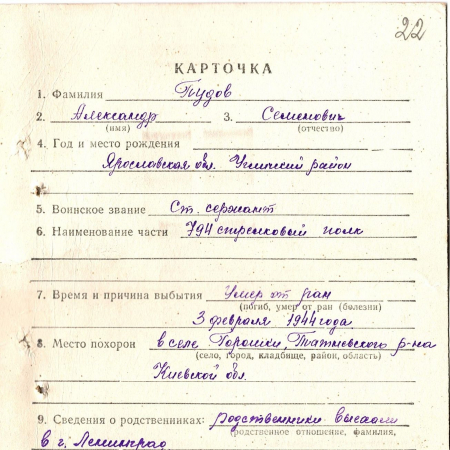 22
КАРТОЧКА
1. Фамилия Пудов
2. Александр 3. Семенович
(имя) (отчество)
4. Год и место рождения
Ярославская обл. Угличский район
5. Воинское звание Ст. сержант
6. Наименование части 794 стрелковый полк
7. Время и причина выбытия Умер от ран
(погиб, умер от ран (болезни)
3 февраля 1944 года
8. Место похорон в селе Горошки, Тетиевского р-на
(село, город, кладбище, район, область)
Киевской обл.
9. Сведения о родственниках: родственники выехали
(родственное отношение, фамилия,
в г. Ленинград